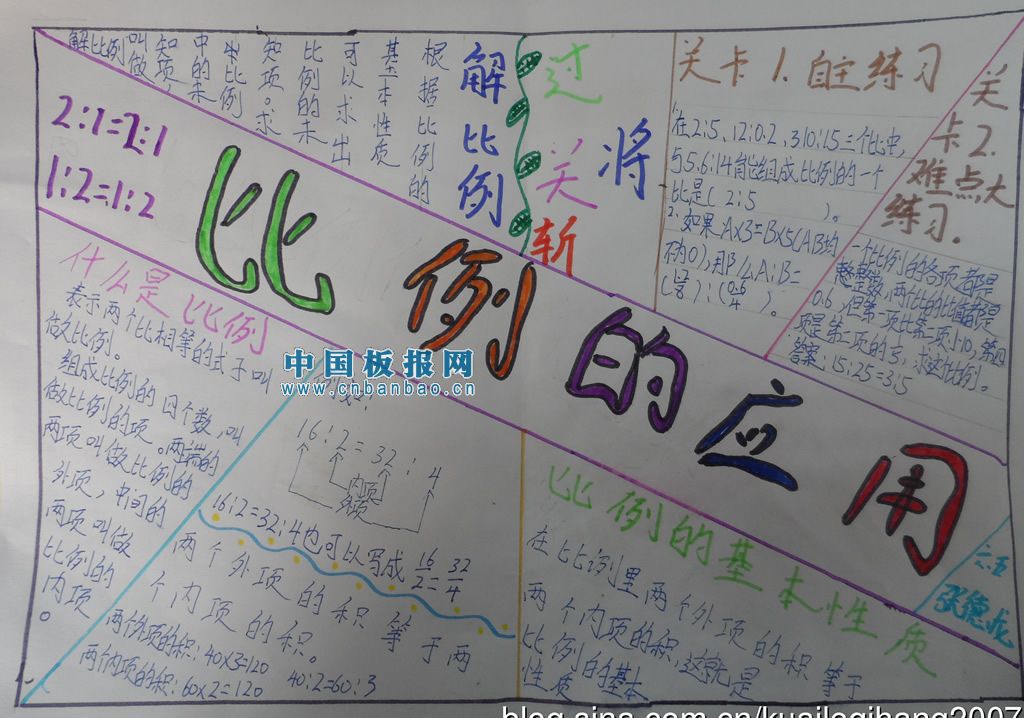 比例的应用
2:1=2:1
1:2=1:2
解比例
根据比例的
基本性质
可以求出
比例的未
知项。求
比例
中的未
知项，
叫做
解比例
过关斩将
关卡1.自主练习
1、在2:5、12:0.2、310:15三个比中，
与5.6:14能组成比例的一个
比是(2:5)。
2、如果A×3=B×5(AB均
不为0)，那么A:B=
关卡2.
难点大
练习.
一个比例的各项都是
整数，两个比的比值都是
0.6，但第一项比第二项小10，第四
答案:15:25=3:5
什么是比例
表示两个比相等的式子叫
做比例。
组成比例的四个数，叫
做比例的项。两端的
两项叫做比例的
外项，中间的
两项叫做
比例的
内项
。
中国板报网
www.cnbanbao.cn
16:2=32:4
内项
外项
16:2=32:4也可以写成16/2=32/4
两个外项的积等于两
个内项的积。
两个外项的积:40×3=120
两个内项的积:60×2=120
40:2=60:3
比例的基本性质
在比例里两个外项的积等于
两个内项的积，这就是
比例的基本
性质
六五
blog.sina.com.cn/kuaileqihang2007